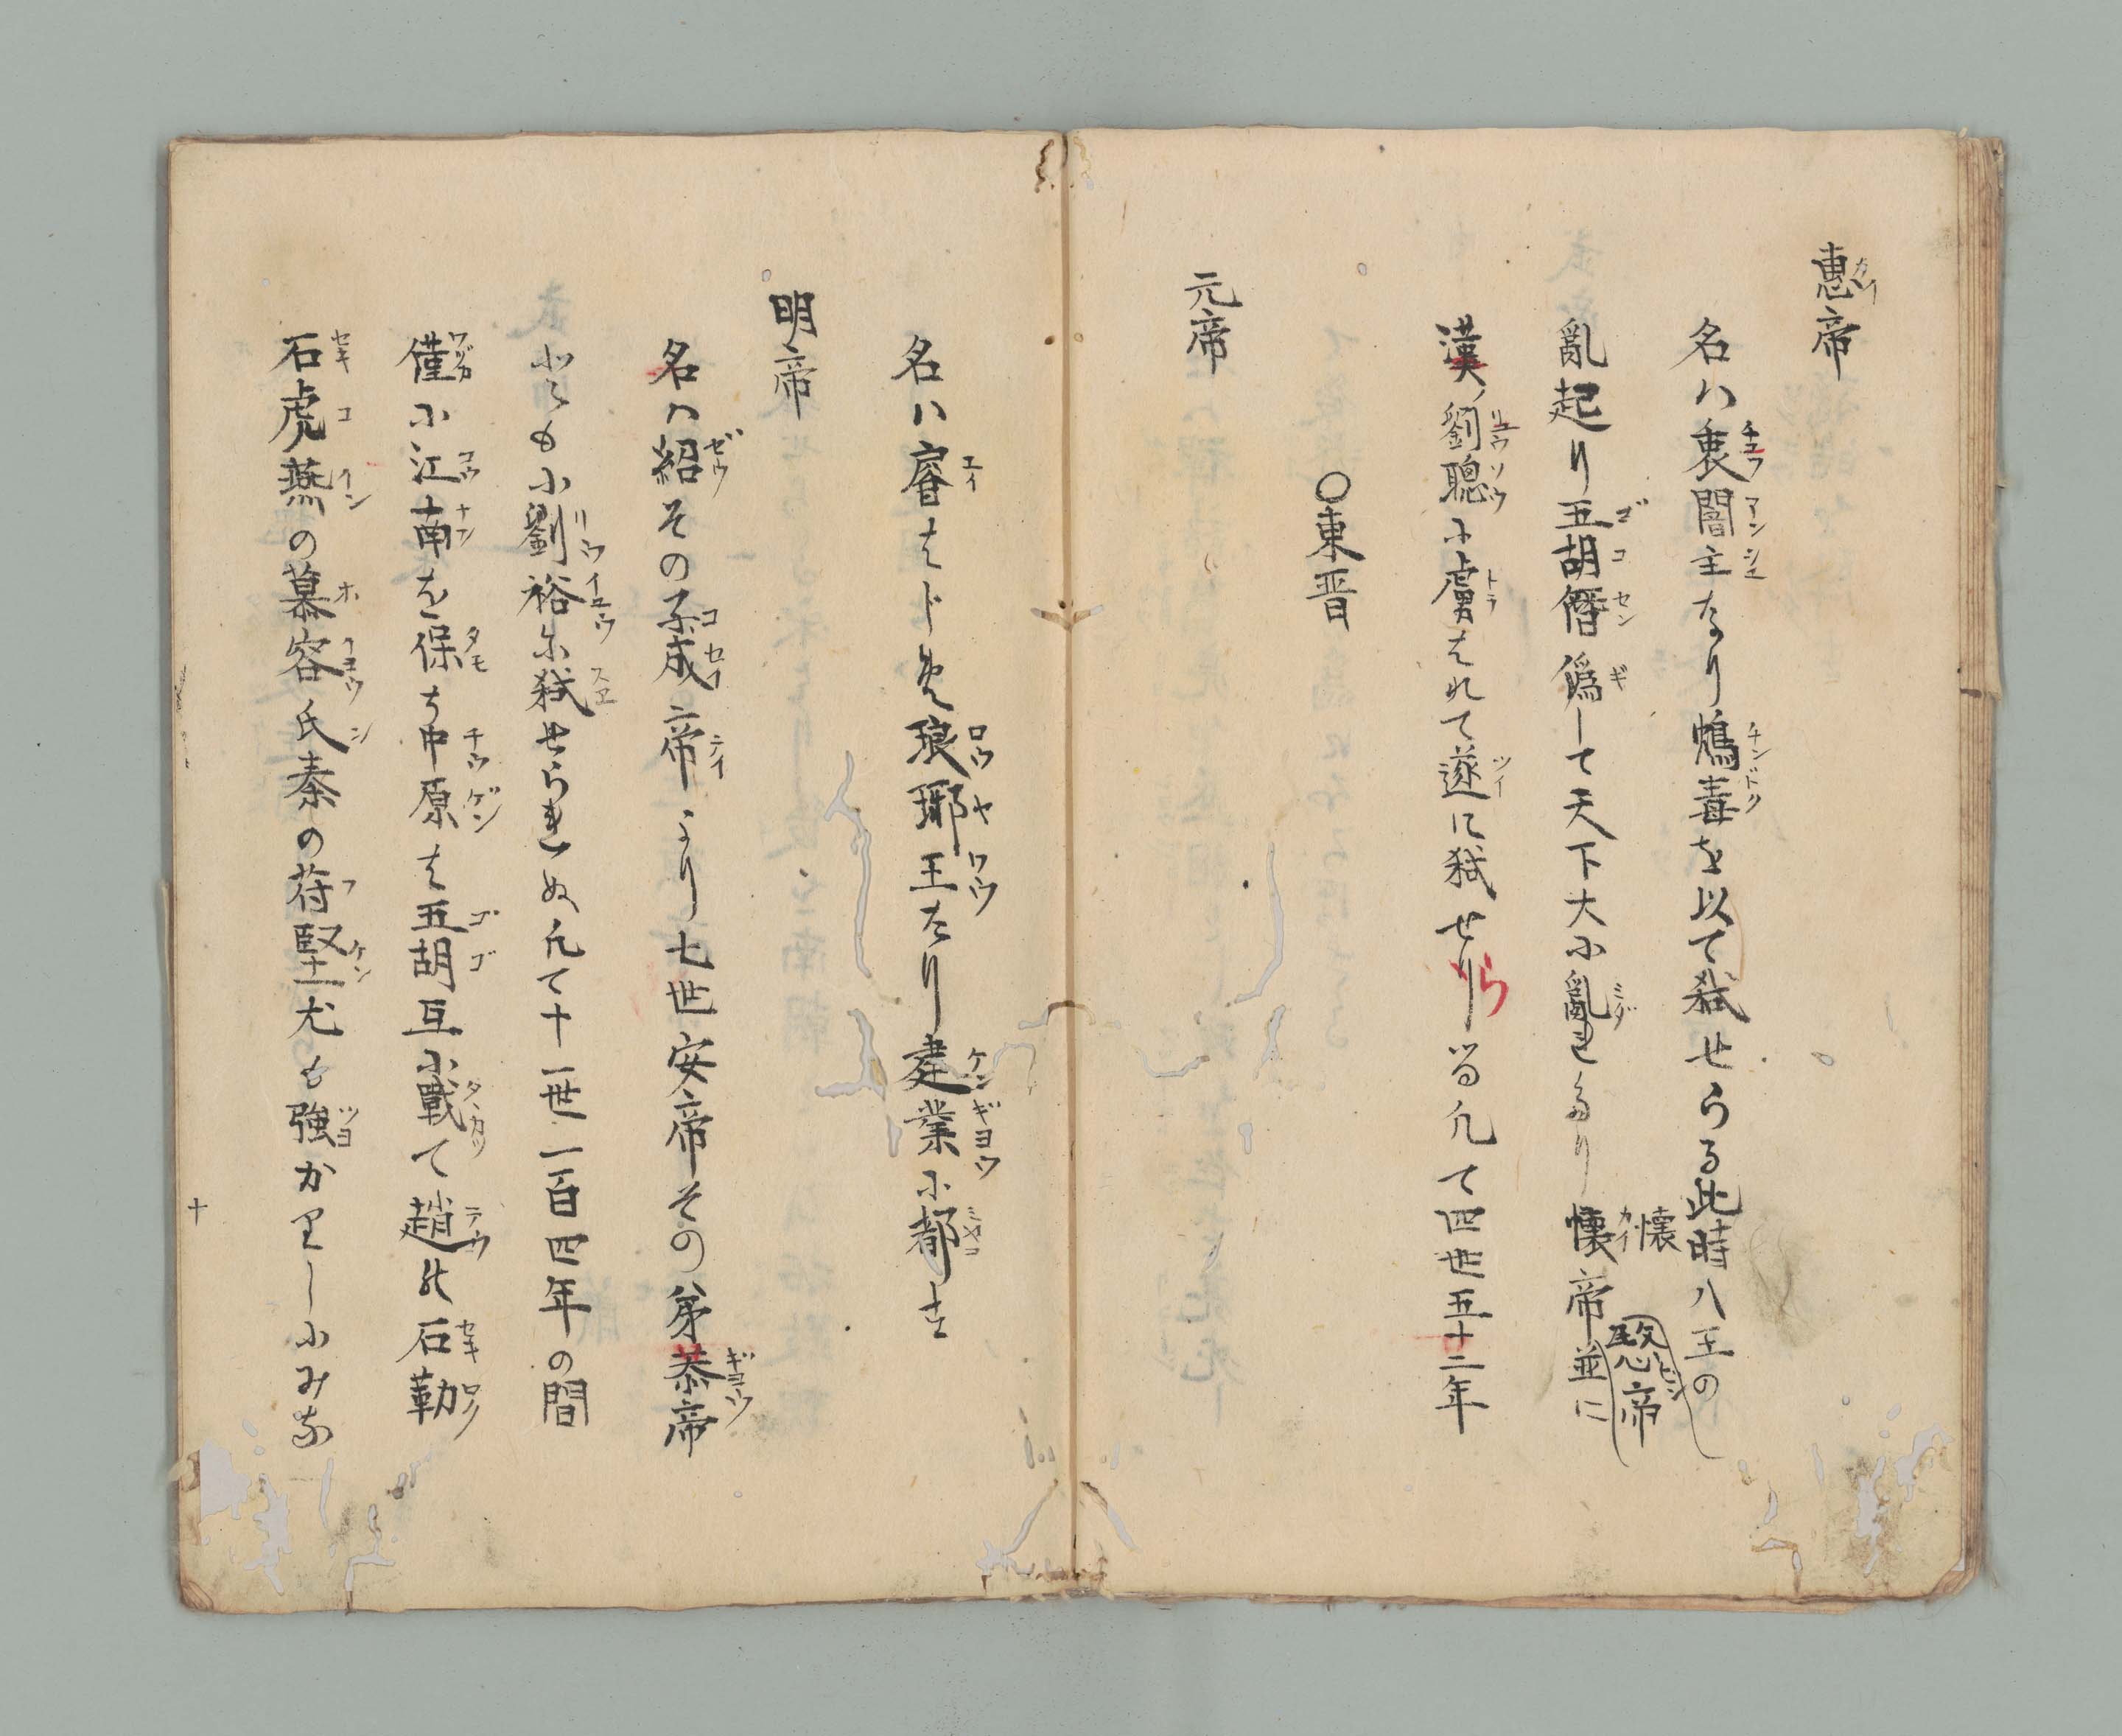 惠帝
名ハ衷闇主なり鴆毒を以て弑せらる此時八王の
亂起り五胡僭偽して天下大に亂れたり懐帝並に
懐
愍帝
漢ノ劉聰に虜はれて遂に弑せらる凡て四世五十二年
〇東晋
元帝
名ハ睿はじめ琅琊王たり建業に都す
明帝
名ハ紹その子成帝より七世安帝その弟恭帝
ともに劉裕に弑せられぬ凡て十一世一百四年の間
僅に江南を保ち中原は五胡互に戰て趙の石勒
石虎燕の慕容氏秦の苻堅尤も強かりしにみな
十